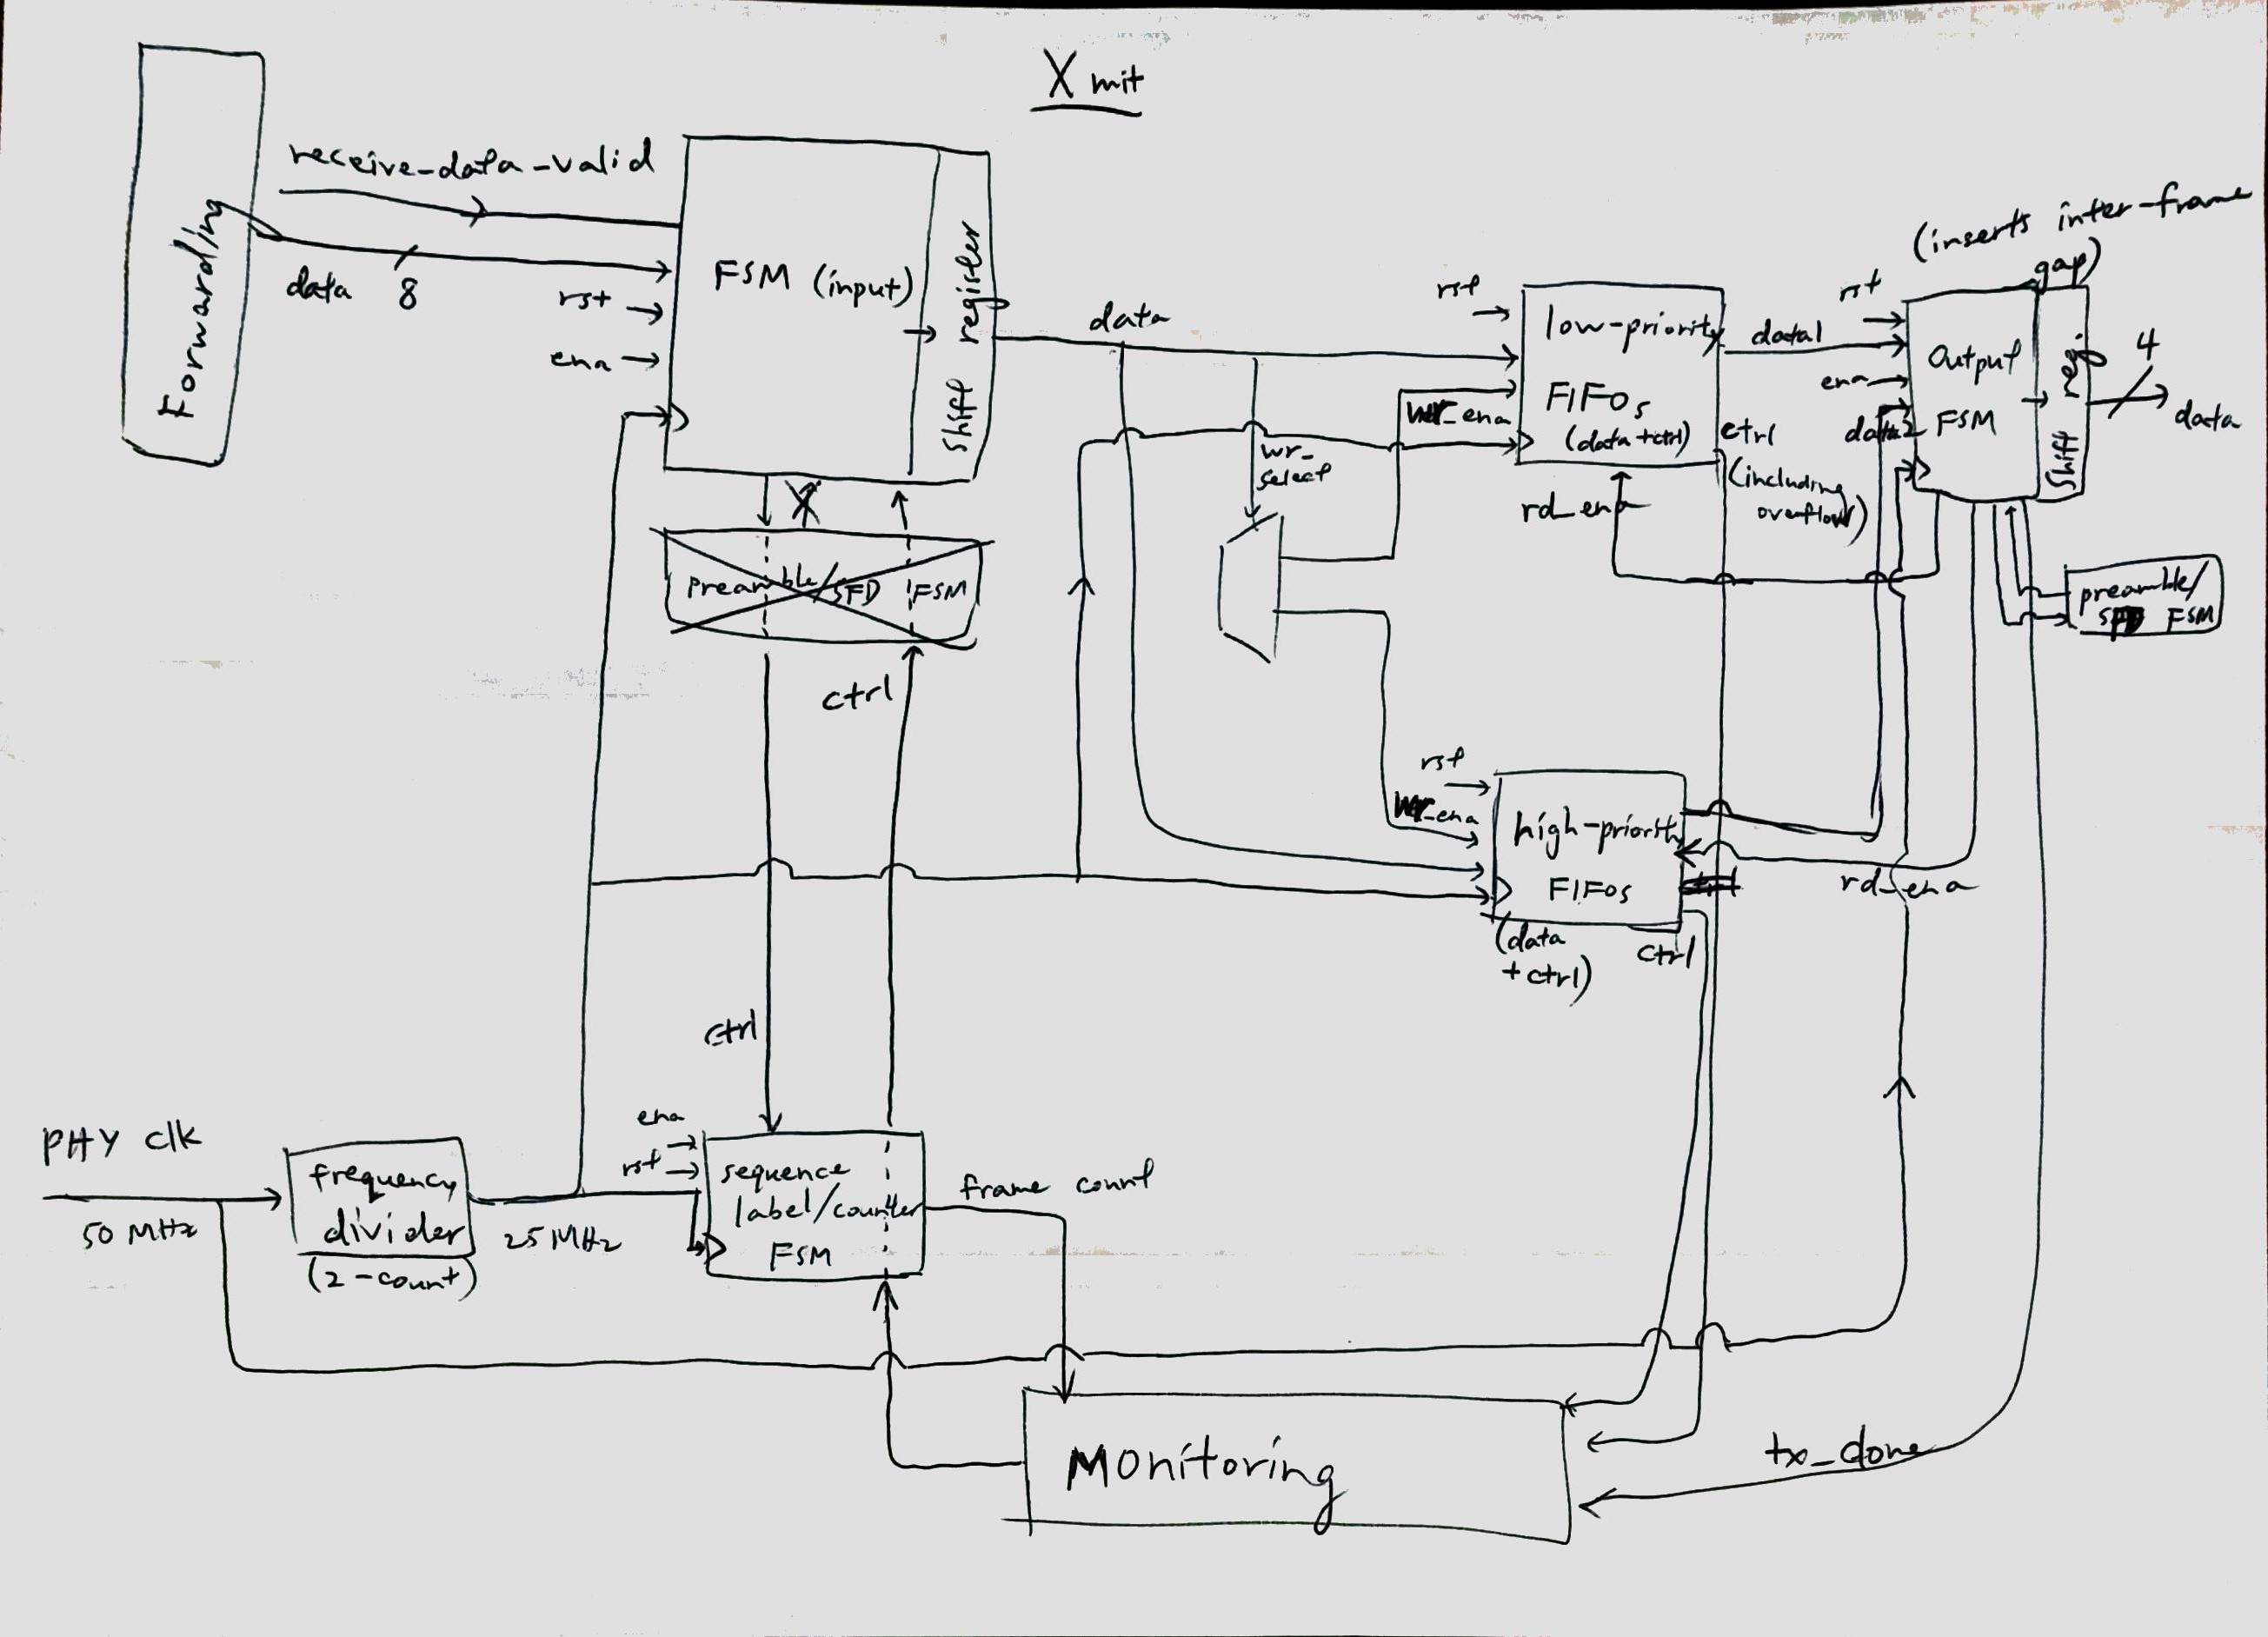 X mit
Forwarding
receive-data-valid
data 8
rst
ena
FSM (input)
shift register
preamble/SFD FSM
ctrl
ctrl
data
wr_
select
rst
low-priority
FIFOs
(data + ctrl)
wr_ena
rd_ena
data1
ctrl
(including
overflow)
(inserts inter-frame
gap)
rst
ena
data2
Output
FSM
shift reg
4
data
preamble/
SFD FSM
rst
wr_ena
high-priority
FIFOs
(data
+ ctrl)
ctrl
ctrl
rd_ena
PHY clk
50 MHz
frequency
divider
(2-count)
25 MHz
ena
rst
sequence
label/counter
FSM
frame count
Monitoring
tx_done